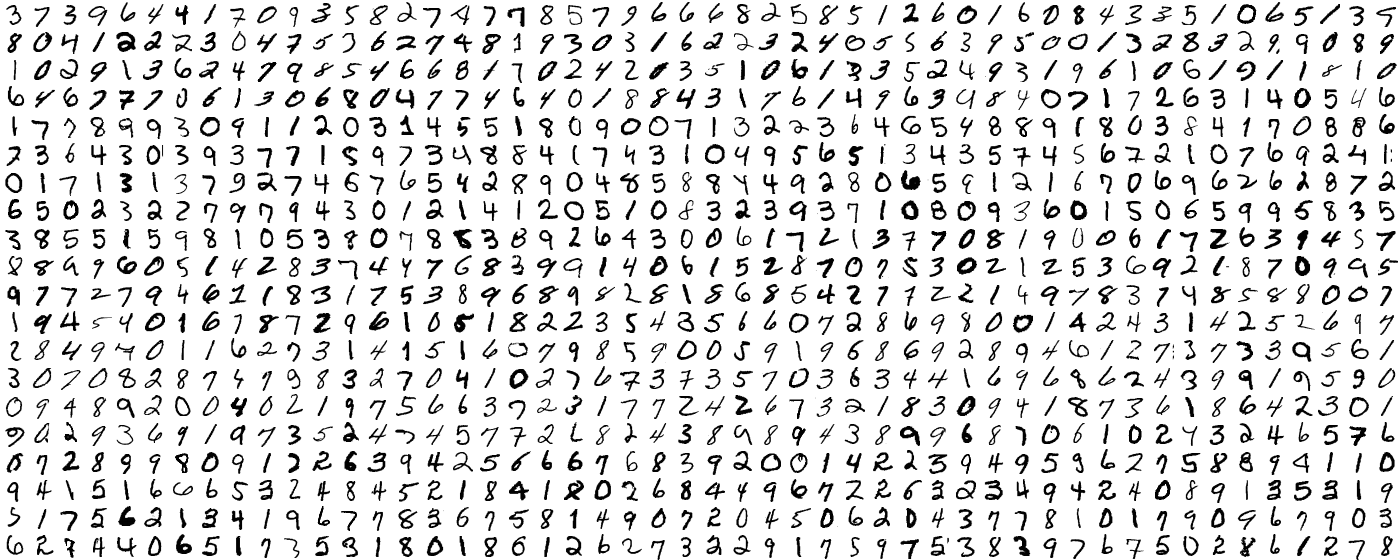 3 7 3 9 6 4 4 1 7 0 9 3 5 8 2 7 4 7 7 8 5 7 9 6 6 6 8 2 5 8 5 1 2 6 0 1 6 0 8 4 3 3 5 1 0 6 5 1 3 5
8 0 4 1 2 2 2 3 0 4 7 5 3 6 2 7 4 8 1 9 3 0 3 1 6 2 2 2 3 2 4 0 5 5 6 3 9 5 0 0 1 3 2 8 3 2 9 9 0 8 9
1 0 2 9 1 3 6 2 4 7 9 8 5 4 6 6 8 1 7 0 2 4 2 0 3 5 1 0 6 1 3 3 5 2 4 9 3 1 9 6 1 0 6 1 9 1 1 8 1 0
6 4 6 7 7 7 0 6 1 3 0 6 8 0 4 7 7 4 6 4 0 1 8 8 4 3 1 7 6 1 4 9 6 3 4 8 4 0 7 1 7 2 6 3 1 4 0 5 4 6
1 7 7 8 9 9 3 0 9 1 1 2 0 3 1 4 5 5 1 8 0 9 0 0 7 1 3 2 2 3 6 4 6 5 4 8 8 9 1 8 0 3 8 4 1 7 0 8 8 6
7 3 6 4 3 0 3 9 3 7 7 1 5 9 7 3 4 8 8 4 1 7 4 3 1 0 4 9 5 6 5 1 3 4 3 5 7 4 5 6 7 2 1 0 7 6 9 2 4 1
0 1 7 1 3 1 3 7 9 2 7 4 6 7 6 5 4 2 8 9 0 4 8 5 8 8 4 4 9 2 8 0 6 5 9 1 2 1 6 7 0 6 9 6 2 6 2 8 7 2
6 5 0 2 3 2 2 7 9 7 9 4 3 0 1 2 1 4 1 2 0 5 1 0 8 3 2 3 9 3 7 1 0 8 0 9 3 6 0 1 5 0 6 5 9 9 5 8 3 5
3 8 5 5 1 5 9 8 1 0 5 3 8 0 7 8 8 3 8 9 2 6 4 3 0 0 6 1 7 2 1 3 7 7 0 8 1 9 0 0 6 1 7 2 6 3 9 4 5 7
8 8 9 9 6 0 5 1 4 2 8 3 7 4 4 7 6 8 3 9 9 1 4 0 6 1 5 2 8 7 0 7 5 3 0 2 1 2 5 3 6 9 2 1 8 7 0 9 9 5
9 7 7 2 7 9 4 6 1 1 8 3 1 7 5 3 8 9 6 8 9 8 2 8 1 8 6 8 5 4 2 7 7 2 2 1 4 9 7 8 3 7 4 8 5 8 8 0 0 7
1 9 4 5 4 0 1 6 7 8 7 2 9 6 1 0 5 1 8 2 2 3 5 4 3 5 6 6 0 7 2 8 6 9 8 0 0 1 4 2 4 3 1 4 2 5 2 6 9 7
2 8 4 9 7 0 1 1 6 2 7 3 1 4 1 5 1 6 0 7 9 8 5 9 0 0 5 9 1 9 6 8 6 9 2 8 9 4 6 1 2 7 3 7 3 3 9 5 6 1
3 0 7 0 8 2 8 7 4 7 9 8 3 2 7 0 4 1 0 2 7 6 7 3 7 3 5 7 0 3 6 3 4 4 1 6 9 6 8 6 2 4 3 9 9 1 9 5 9 0
0 9 4 8 9 2 0 0 4 0 2 1 9 7 5 6 6 3 7 2 3 1 7 7 2 4 2 6 7 3 2 1 8 3 0 9 4 1 8 7 3 6 1 8 6 4 2 3 0 1
9 0 2 9 3 6 9 1 9 7 3 5 2 4 7 4 5 7 7 2 6 8 2 4 3 8 9 8 9 4 3 8 9 9 6 8 7 0 6 1 0 2 4 3 2 4 6 5 7 6
0 7 2 8 9 9 8 0 9 1 2 2 6 3 9 4 2 5 6 6 6 7 6 8 3 9 2 0 0 1 4 2 2 3 9 4 9 5 9 6 2 7 5 8 8 9 4 1 1 0
9 4 1 5 1 6 6 6 5 3 2 4 8 4 5 2 1 8 4 1 8 0 2 6 8 4 4 9 6 7 2 2 6 3 2 3 4 9 4 2 4 0 8 9 1 3 5 3 1 9
5 1 7 5 6 2 1 3 4 1 9 6 7 7 8 3 6 7 5 8 1 4 9 0 7 2 0 4 5 0 6 2 0 4 3 7 7 8 1 0 1 7 9 0 9 6 7 9 0 3
6 2 7 4 4 0 6 5 1 7 3 5 3 1 8 0 1 8 6 1 2 6 2 7 3 2 2 9 1 7 5 9 7 5 3 8 3 9 7 6 7 5 0 3 8 6 1 3 7 8